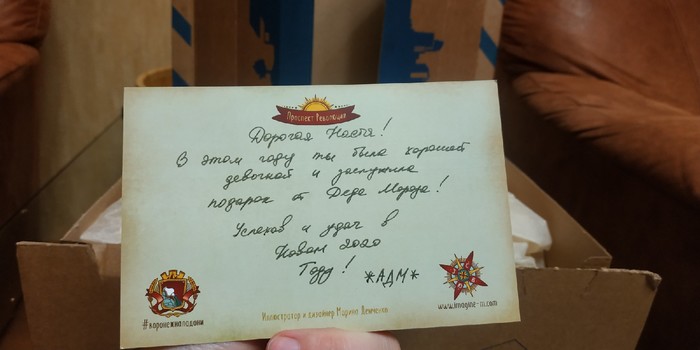 Проспект Революции
Дорогая Настя!
В этом году ты была хорошей
девочкой и заслужила
подарок от Деда Мороза!
Успехов и удач в
Новом 2020
Году!
*АДМ*
#воронежналадони
www.imagine-rn.com
Иллюстратор и дизайнер Марина